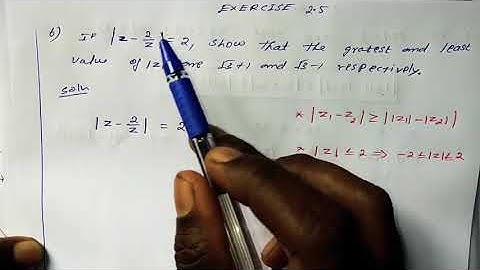 EXERCISE 2.5
6) If |z - 2/z| = 2, show that the gratest and least
value of |z are √3+1 and √3-1 respectively.
Soln
|z - 2/z| = 2
* |z1 - z2| ≥ ||z1| - |z2|)
* |z| ≤ 2 ⇒ -2 ≤ |z| ≤ 2